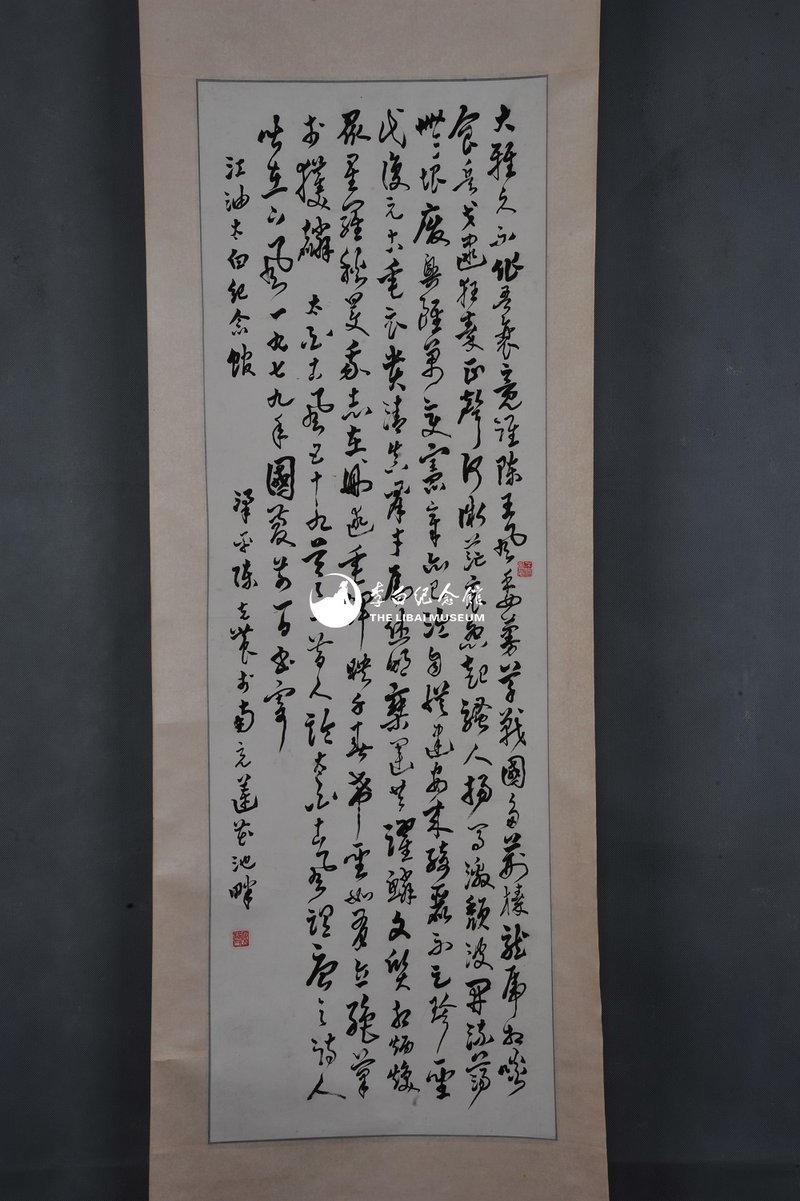 大雅久不作吾衰竟誰陳王風委蔓草戰國多荊榛龍虎相啖
食兵戈逮狂秦正聲何微茫哀怨起騷人揚馬激頹波開流蕩
無垠廢興雖萬變憲章亦已淪自從建安來綺麗不足珍聖
代復元古垂衣貴清真羣才屬休明乘運共躍鱗文質相炳煥
眾星羅秋旻我志在刪述垂輝映千春希聖如有立絕筆
於獲麟 太白古風五十九首之一昔人論太白古風謂唐之詩人
皆在下風一九七九年國慶前一日書寄
江油太白紀念館
梁平陳克農於南充蓮花池畔
李白纪念馆
THE LIBAI MUSEUM